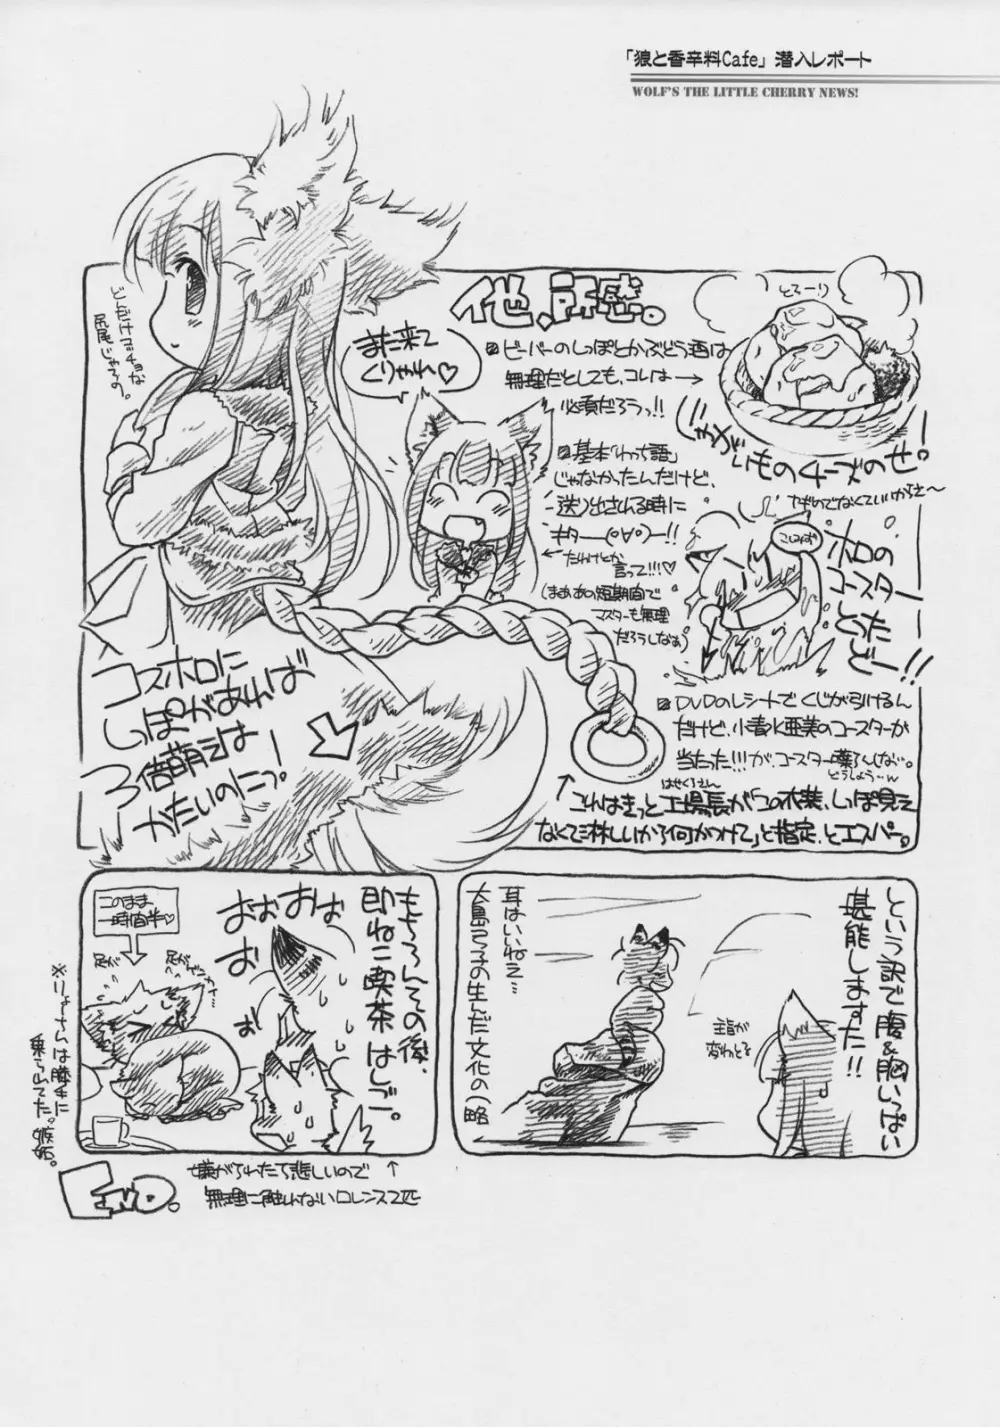 「狼と香辛料Cafe」潜入レポート
WOLF'S THE LITTLE CHERRY NEWS!
他、所感。
どんだけマッチョな
尻尾じゃろの。
また来て
くりゃれ♡
ビーバーのしっぽとかぶどう酒は
無理だとしても、コレは→
必須だろうっ!!
とろーり
じゃがいものチーズのせ。
基本「わっち語」
じゃなかったんだけど、
送り出される時に
キター(°∀°)ー!!
←たわけとか
言って!!!♡
(まぁあの短期間で
マスターも無理
だろうしなぁ)
ホロの
コースター
とった
どー!!
DVDのレシートでくじが引けるん
だけど、小清水亜美のコースターが
当たった!!!が、コースター
どうしよう…w
コスホロに
しっぽがあれば
3倍萌えは
かたいのにっ!
はせくらさん
↑これはきっと工場長が「この衣装、しっぽ見え
なくて淋しいから何かつけて」と指定、とエスパー。
という訳で腹&胸いっぱい
堪能しますた!!
主旨が
変わっとる
耳はいいねェ…
大島弓子の生んだ文化の(略
もちろんその後、
即ねこ喫茶はしご。
おぉおぉ
おぉ
おぉ
このまま
一時間半♡
※りょーさんは勝手に
乗られてた。嫉妬。
嫌がられたら悲しいので
無理に触れないロレンス2匹
END.